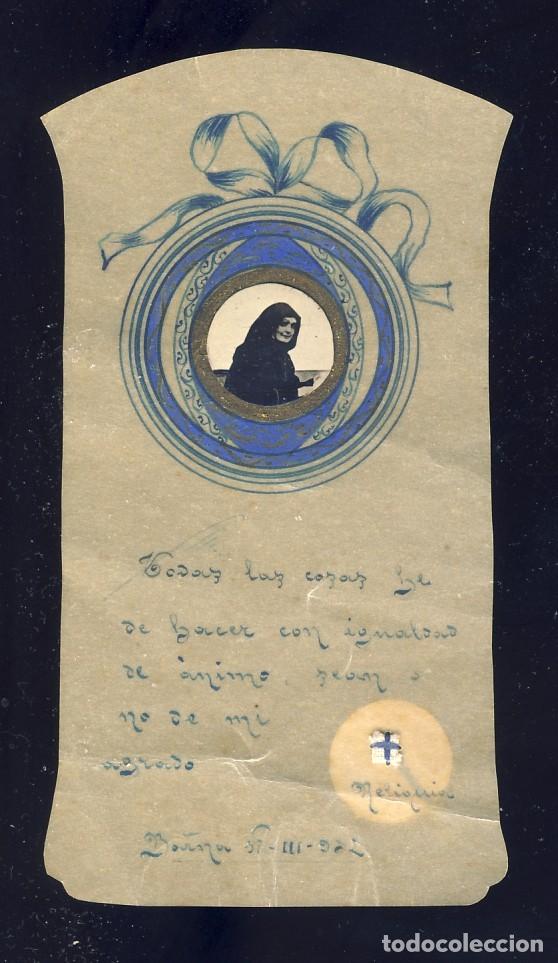 Todas las cosas he
de hacer con igualdad
de ánimo, sean o
no de mi
agrado
Reliquia
Barna -III-932
todocoleccion